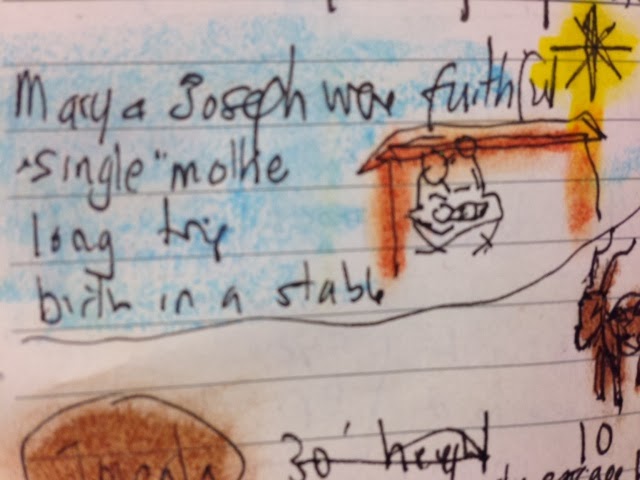 Mary & Joseph were faithful
"single" mothe
long trip
birth in a stable
30' height
10